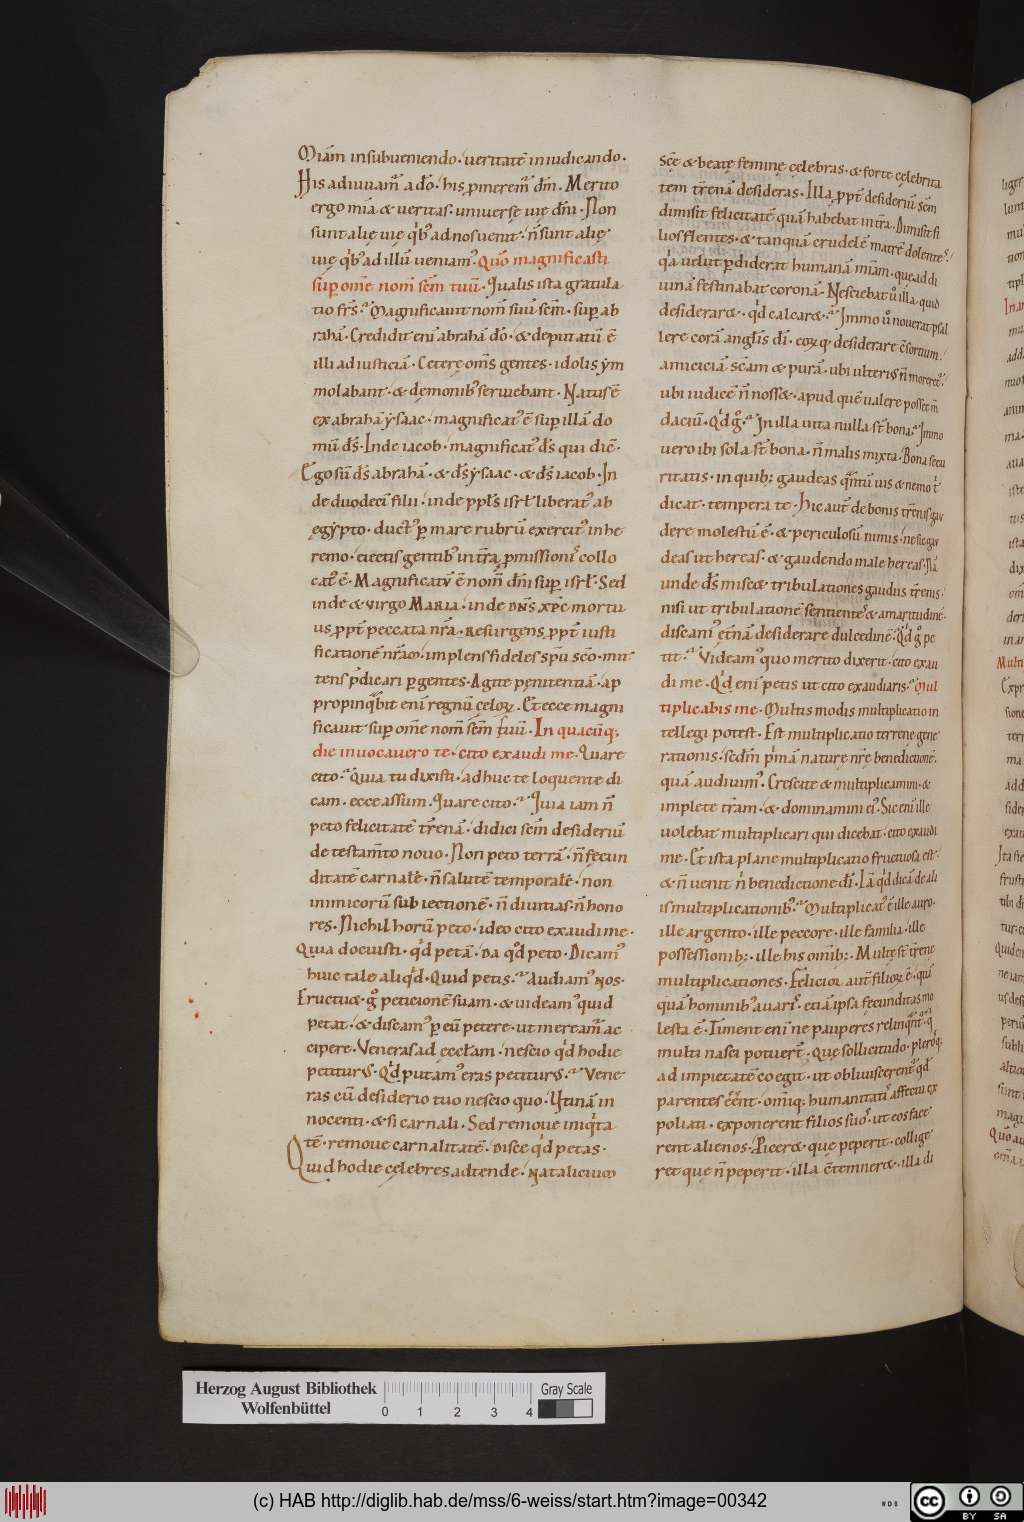 Miã̄m in subueniendo · ueritatē in iudicando ·
His adiuuam̄ a dō · his ꝓmerem̄ dm̄ · Merito
ergo mĩa & ueritas · uniuersę uię dn̄i · Non
sunt alię uię qͥbꝰ ad nos uenit · n̄ sunt alię
uię qͥbꝰ ad illū ueniamꝰ · Quō magnificasti
sup om̄e nom̄ scm̄ tuū · Qualis ista gratula
tio frs̄ · Magnificauit nom̄ suū scm̄ · sup ab
rahā · Credidit eni abrahā dō · & deputatū ē
illi ad iusticiā · Cetere om̄s gentes · idolis ẏm
molabant · & demonibꝰ seruiebant · Natus ē
ex abrahā ẏsaac · magnificatꝰ ē sup illā do
mū ds̄ · Inde iacob · magnificatꝰ ds̄ qui dic̄ ·
Ego sū ds̄ abrahā · & ds̄ ẏsaac · & ds̄ iacob · In
de duodeci filii · inde ppl̄s isrl̄ liberatꝰ ab
ęgẏpto · ductꝰ ꝑ mare rubrū exercitꝰ in he
remo · eiectis gentibꝰ in tr̄a ꝓmissionis collo
catꝰ ē · Magnificatū ē nom̄ dn̄i sup isrl̄ · Sed
inde & uirgo MARIA · inde DN̄S XP̄C mortu
us ꝓpt̄ peccata nr̄a · Resurgens ꝓpt̄ iusti
ficationē nr̄am · implens fideles sp̄u sc̄o · mit
tens p̄dicari ꝑ gentes · Agite pęnitentiā · ap
propinqͣbit eni regnū cęloꝝ · Et ecce magni
ficauit sup om̄e nom̄ scm̄ tuū · In quacūq;
die inuocauero te · cito exaudi me · Quare
cito · Quia tu dixisti · adhuc te loquente di
cam · ecce assum · Quare cito · Quia iam n̄
peto felicitatē tr̄enā · didici scm̄ desideriū
de testam̄to nouo · Non peto terrā · n̄ fecun
ditatē carnalē · n̄ salutē temporalē · non
inimicorū subiectionē · n̄ diuitias · n̄ hono
res · Nichil horū peto · ideo cito exaudi me ·
Quia docuisti · qͥd petā · DA qͦd peto · Dicamꝰ
huic tale aliqͥd · Quid petis · Audiamꝰ nos ·
Eructuet gͦ peticionē suam · & uideamꝰ quid
petat · & discamꝰ ꝑ eū petere · ut meream̄ ac
cipere · Veneras ad ęccl̄am · nescio qͥd hodie
petiturꝰ · Qͥd putamꝰ eras petiturꝰ · Vene
ras cū desiderio tuo nescio quo · Utinā in
nocenti · & si carnali · Sed remoue iniqͥta
tē · remoue carnalitatē · Disce qͥd petas ·
Quid hodie cęlebres adtende · Nataliciū
scē & beatę feminę cęlebras · & forte cęlebrita
tem tr̄enā desideras · Illa ꝓpt̄ desideriū scm̄
dimisit felicitatē quā habebat in tr̄a · Dimisit fi
lios flentes · & tanquā crudelē matrē dolentes ·
qͥa uelut ꝑdiderat humanā miam · que ad di
uinā festinabat coronā · Nesciebat uͦ illa · quid
desideraret · qͥd calcaret · Immo uͦ nouerat psal
lere corā anglis di · eoꝝq desiderare c̄sortium ·
amiciciā scam & purā · ubi ulterius n̄ moreret ·
ubi iudicē n̄ nosset · apud quē ualere posset m̄
daciū · Qͥd gͦ · In illa uita nulla st̄ bona · Immo
uero ibi sola st̄ bona · n̄ malis mixta · Bona secu
ritatis · in quibꝫ gaudeas qn̄tū uis & nemo t̄
dicat · tempera te · Hic aut̄ de bonis tr̄enis gau
dere molestū ē · & periculosū nimis · ne sic gau
deas ut hereas · & gaudendo male hereas · Nā
unde ds̄ miscet tribulationes gaudiis tr̄enis ·
nisi ut tribulationē sentientes & amaritudinē ·
discamꝰ etn̄ā desiderare dulcedinē · Qͥd gͦ pe
tit · Videamꝰ quo merito dixerit · cito exau
di me · Qͥd eni petis ut cito exaudiaris · Mul
tiplicabis me · Multis modis multiplicatio in
tellegi potest · Est multiplicatio terrene gene
rationis · scdm̄ p̄mā naturę nr̄e benedictionē ·
quā audiuimꝰ · Crescite & multiplicamini · &
implete tr̄am · & dominamini ei · Sic eni ille
uolebat multiplicari qui dicebat · cito exaudi
me · Et ista plane multiplicatio fructuosa est ·
& n̄ uenit n̄ benedictione di · Iā qͥd dicā de ali
is multiplicationibꝰ · Multiplicatꝰ ē ille auro ·
ille argento · ille peccore · ille familia · ille
possessionibꝫ · ille his om̄ibꝫ · Multę st̄ tr̄ene
multiplicationes · Felicior aut̄ filioꝝ ē · quā
quā hominibꝰ auaris · etiā ipsa fecunditas mo
lesta ē · Timent eni ne pauperes relinqͣnt · q
multi nasci potuert̄ · Que sollicitudo · plerosq;
ad impietatē coegit · ut obliuiscerent qͥd
parentes eēnt · om̄iq; humanitatis affectu ex
poliati · exponerent filios suos · ut eos face
rent alienos · Piceret · quę peperit · collige
ret quę n̄ peperit · illa c̄temneret · illa di
Herzog August Bibliothek
Wolfenbüttel
0 1 2 3 4
Gray Scale
(c) HAB http://diglib.hab.de/mss/6-weiss/start.htm?image=00342
WDB
cc
BY SA